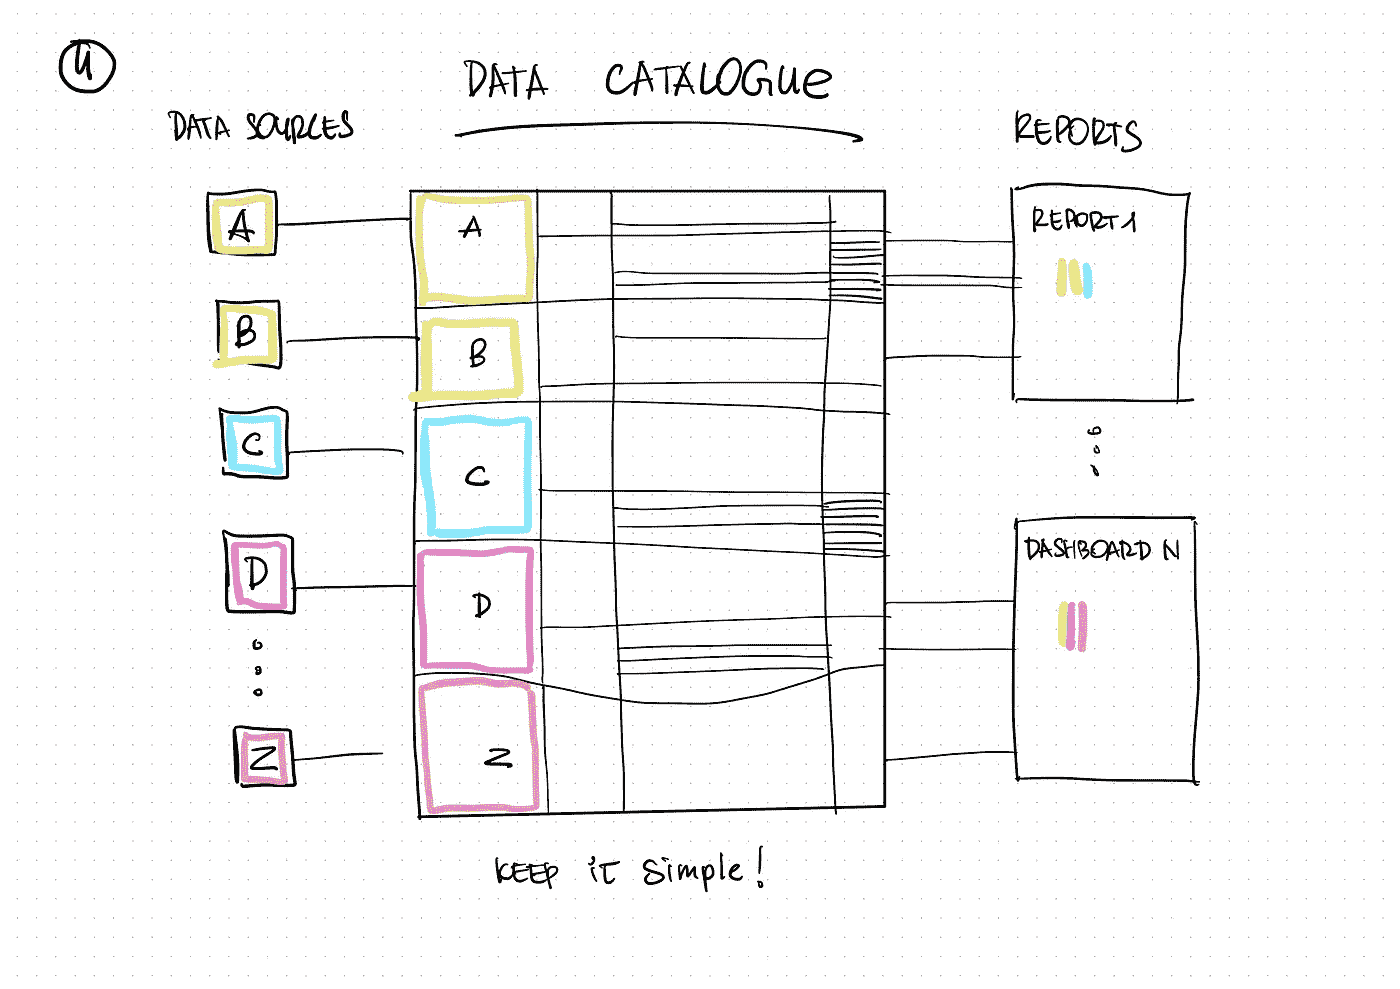 4
DATA CATALOGUE
DATA SOURCES
REPORTS
A
B
C
D
Z
A
B
C
D
Z
REPORT 1
DASHBOARD N
KEEP iT Simple!